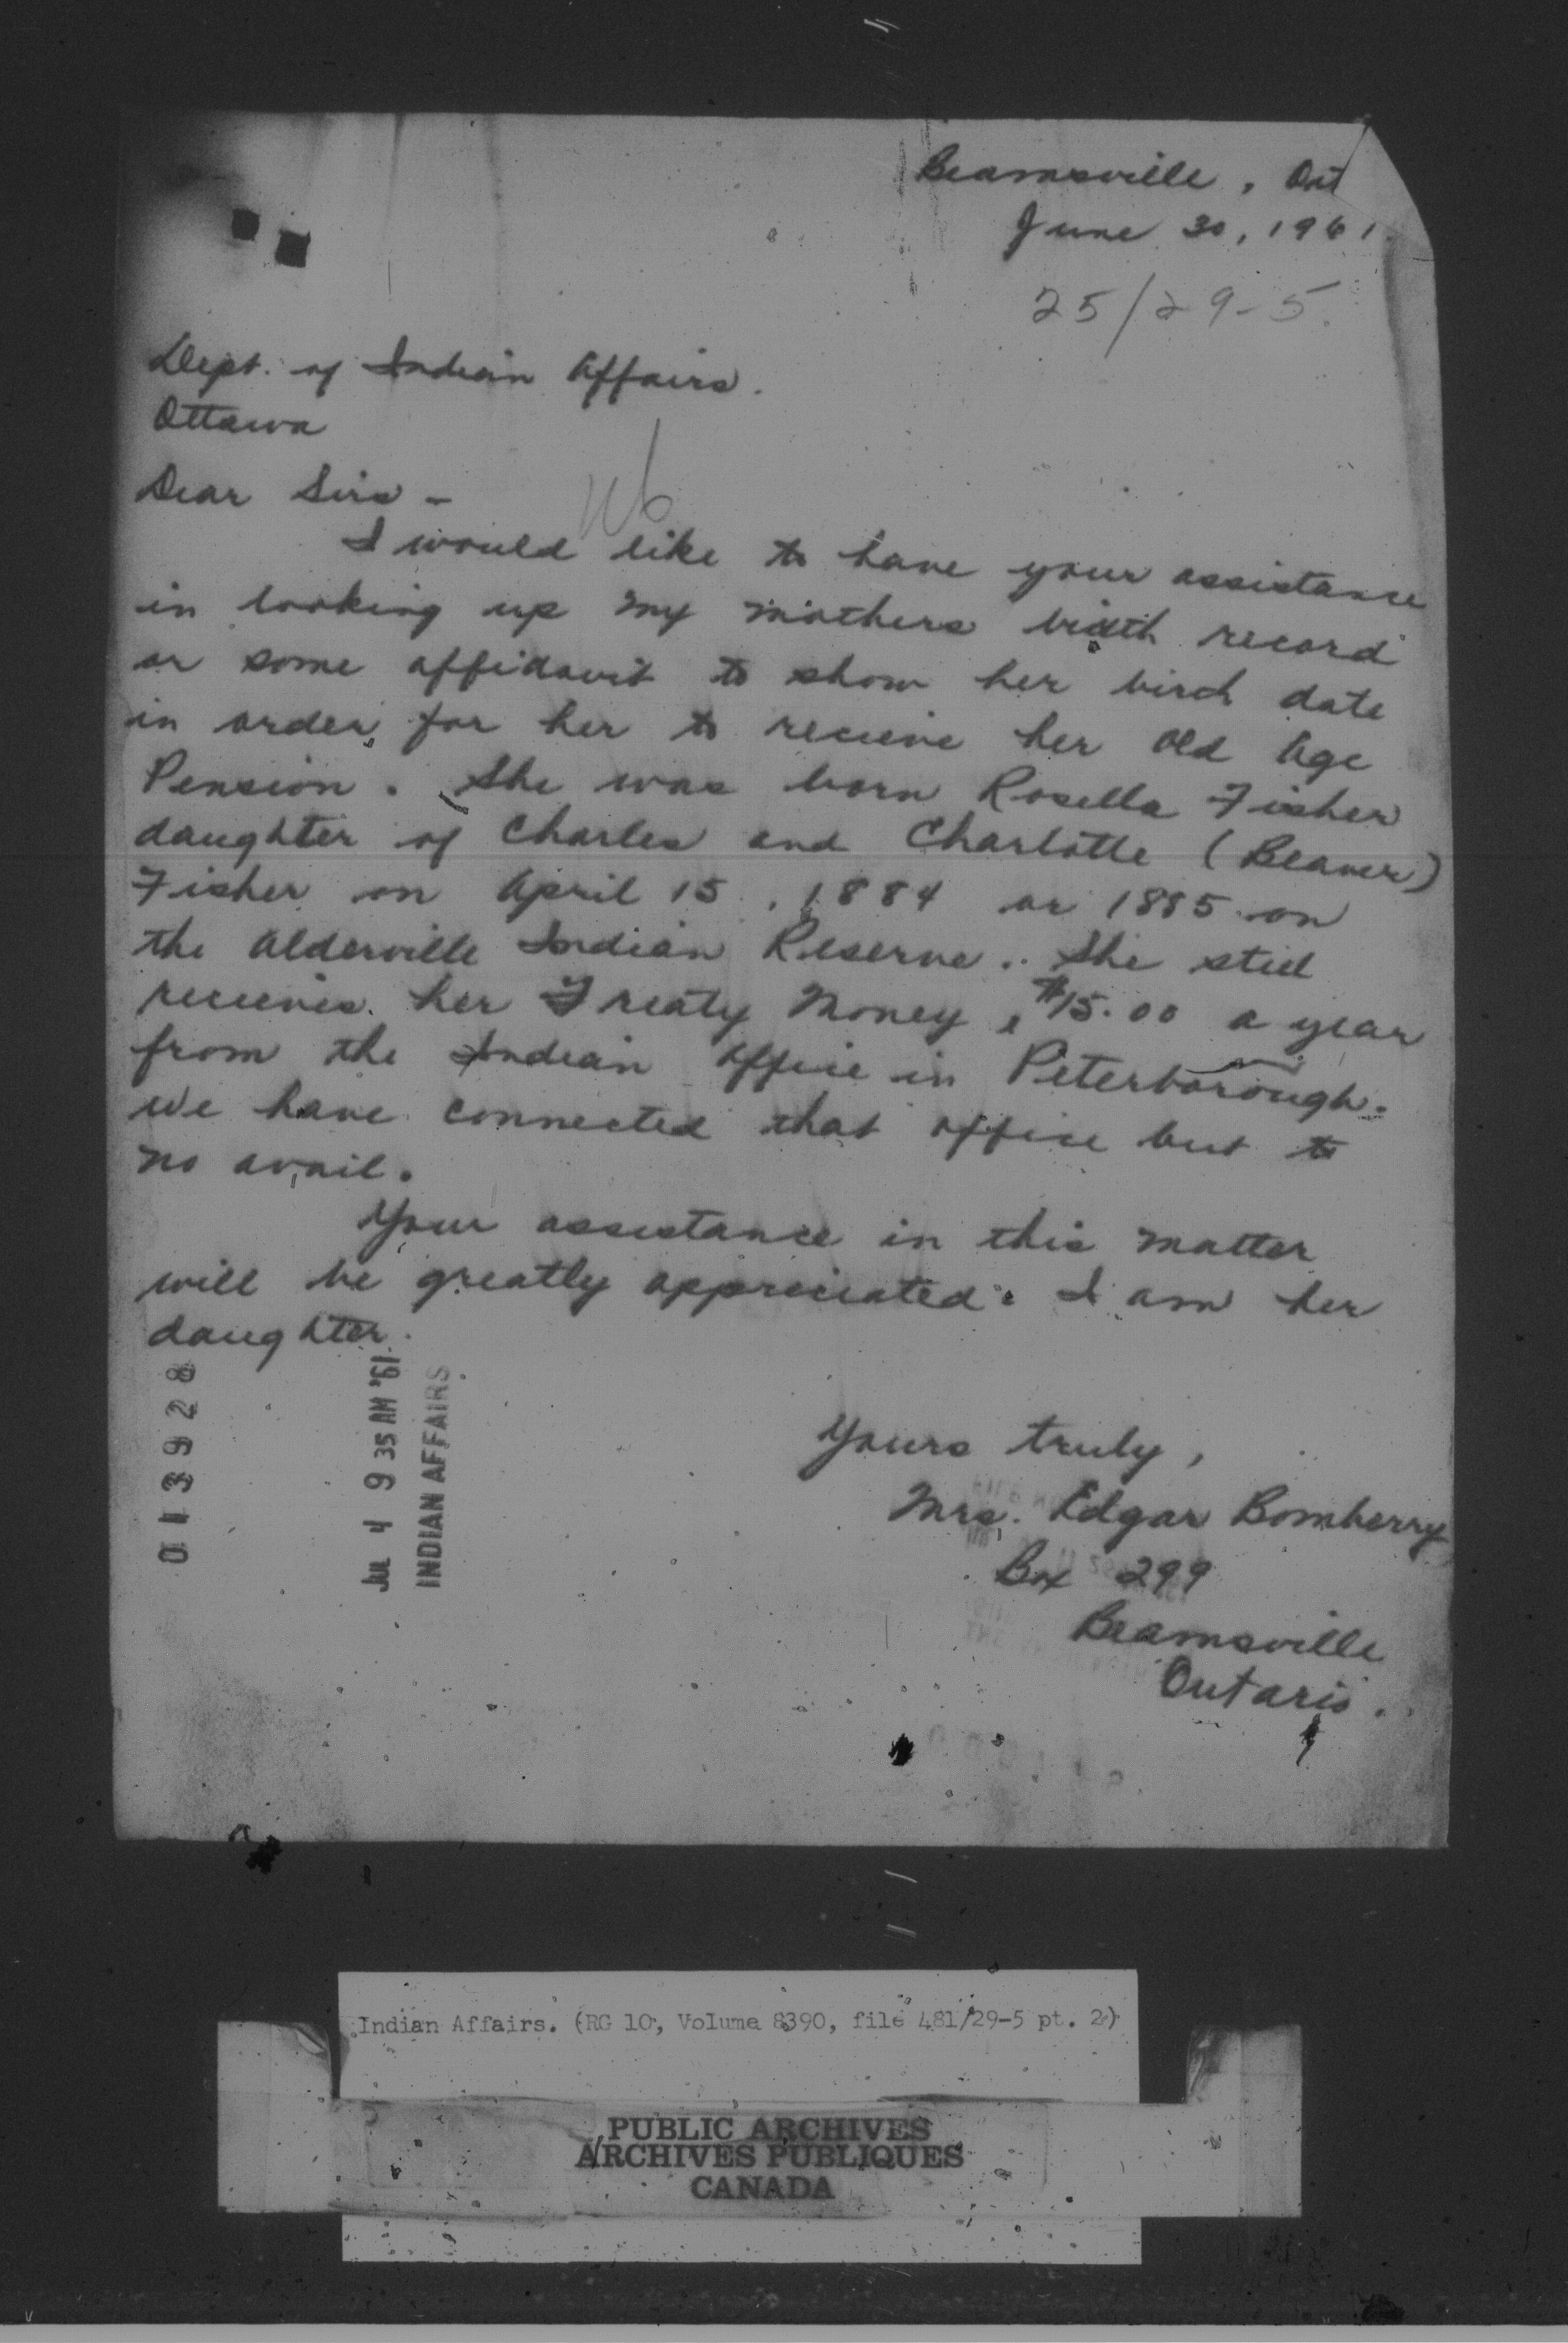 Beamsville, Ont
June 30, 1961.
25/29-5.
Dept. of Indian Affairs.
Ottawa
Dear Sirs -
I would like to have your assistance
in looking up my mothers birth record
or some affidavit to show her birth date
in order, for her to recieve her Old Age
Pension. She was born Rosella Fisher
daughter of Charles and Charlotte (Beaver)
Fisher on April 15, 1884 or 1885 on
the Alderville Indian Reserve. She still
recieves her Treaty Money, $15.00 a year
from the Indian Office in Peterborough.
We have connected that office but to
no avail.
Your assistance in this matter
will be greatly appreciated. I am her
daughter.
013928
JUL 4 9 35 AM '61
INDIAN AFFAIRS
Yours truly,
Mrs. Edgar Bomberry
Box 299
Beamsville
Ontario.
Indian Affairs. (RG 10, Volume 8390, file 481/29-5 pt. 2)
PUBLIC ARCHIVES
ARCHIVES PUBLIQUES
CANADA